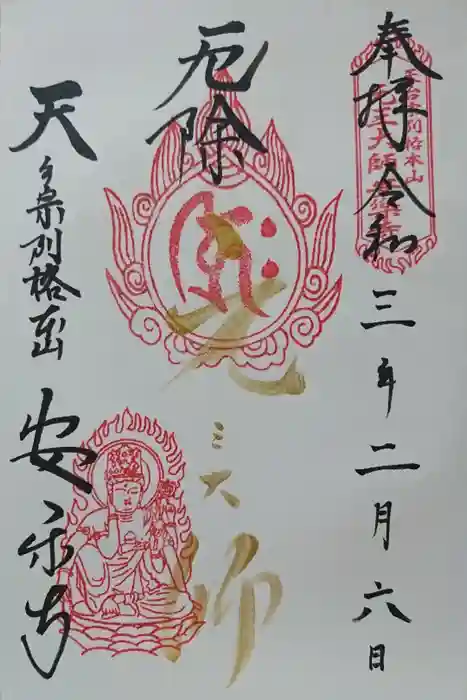 奉拝 令和三年二月六日
天台宗別格本山
元三大師 安楽寺
厄除
元三大師
天台宗別格本山
安楽寺